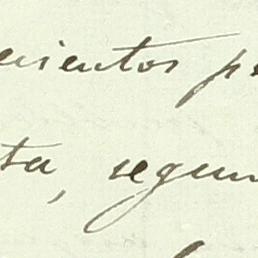 enientos p
ta, segun